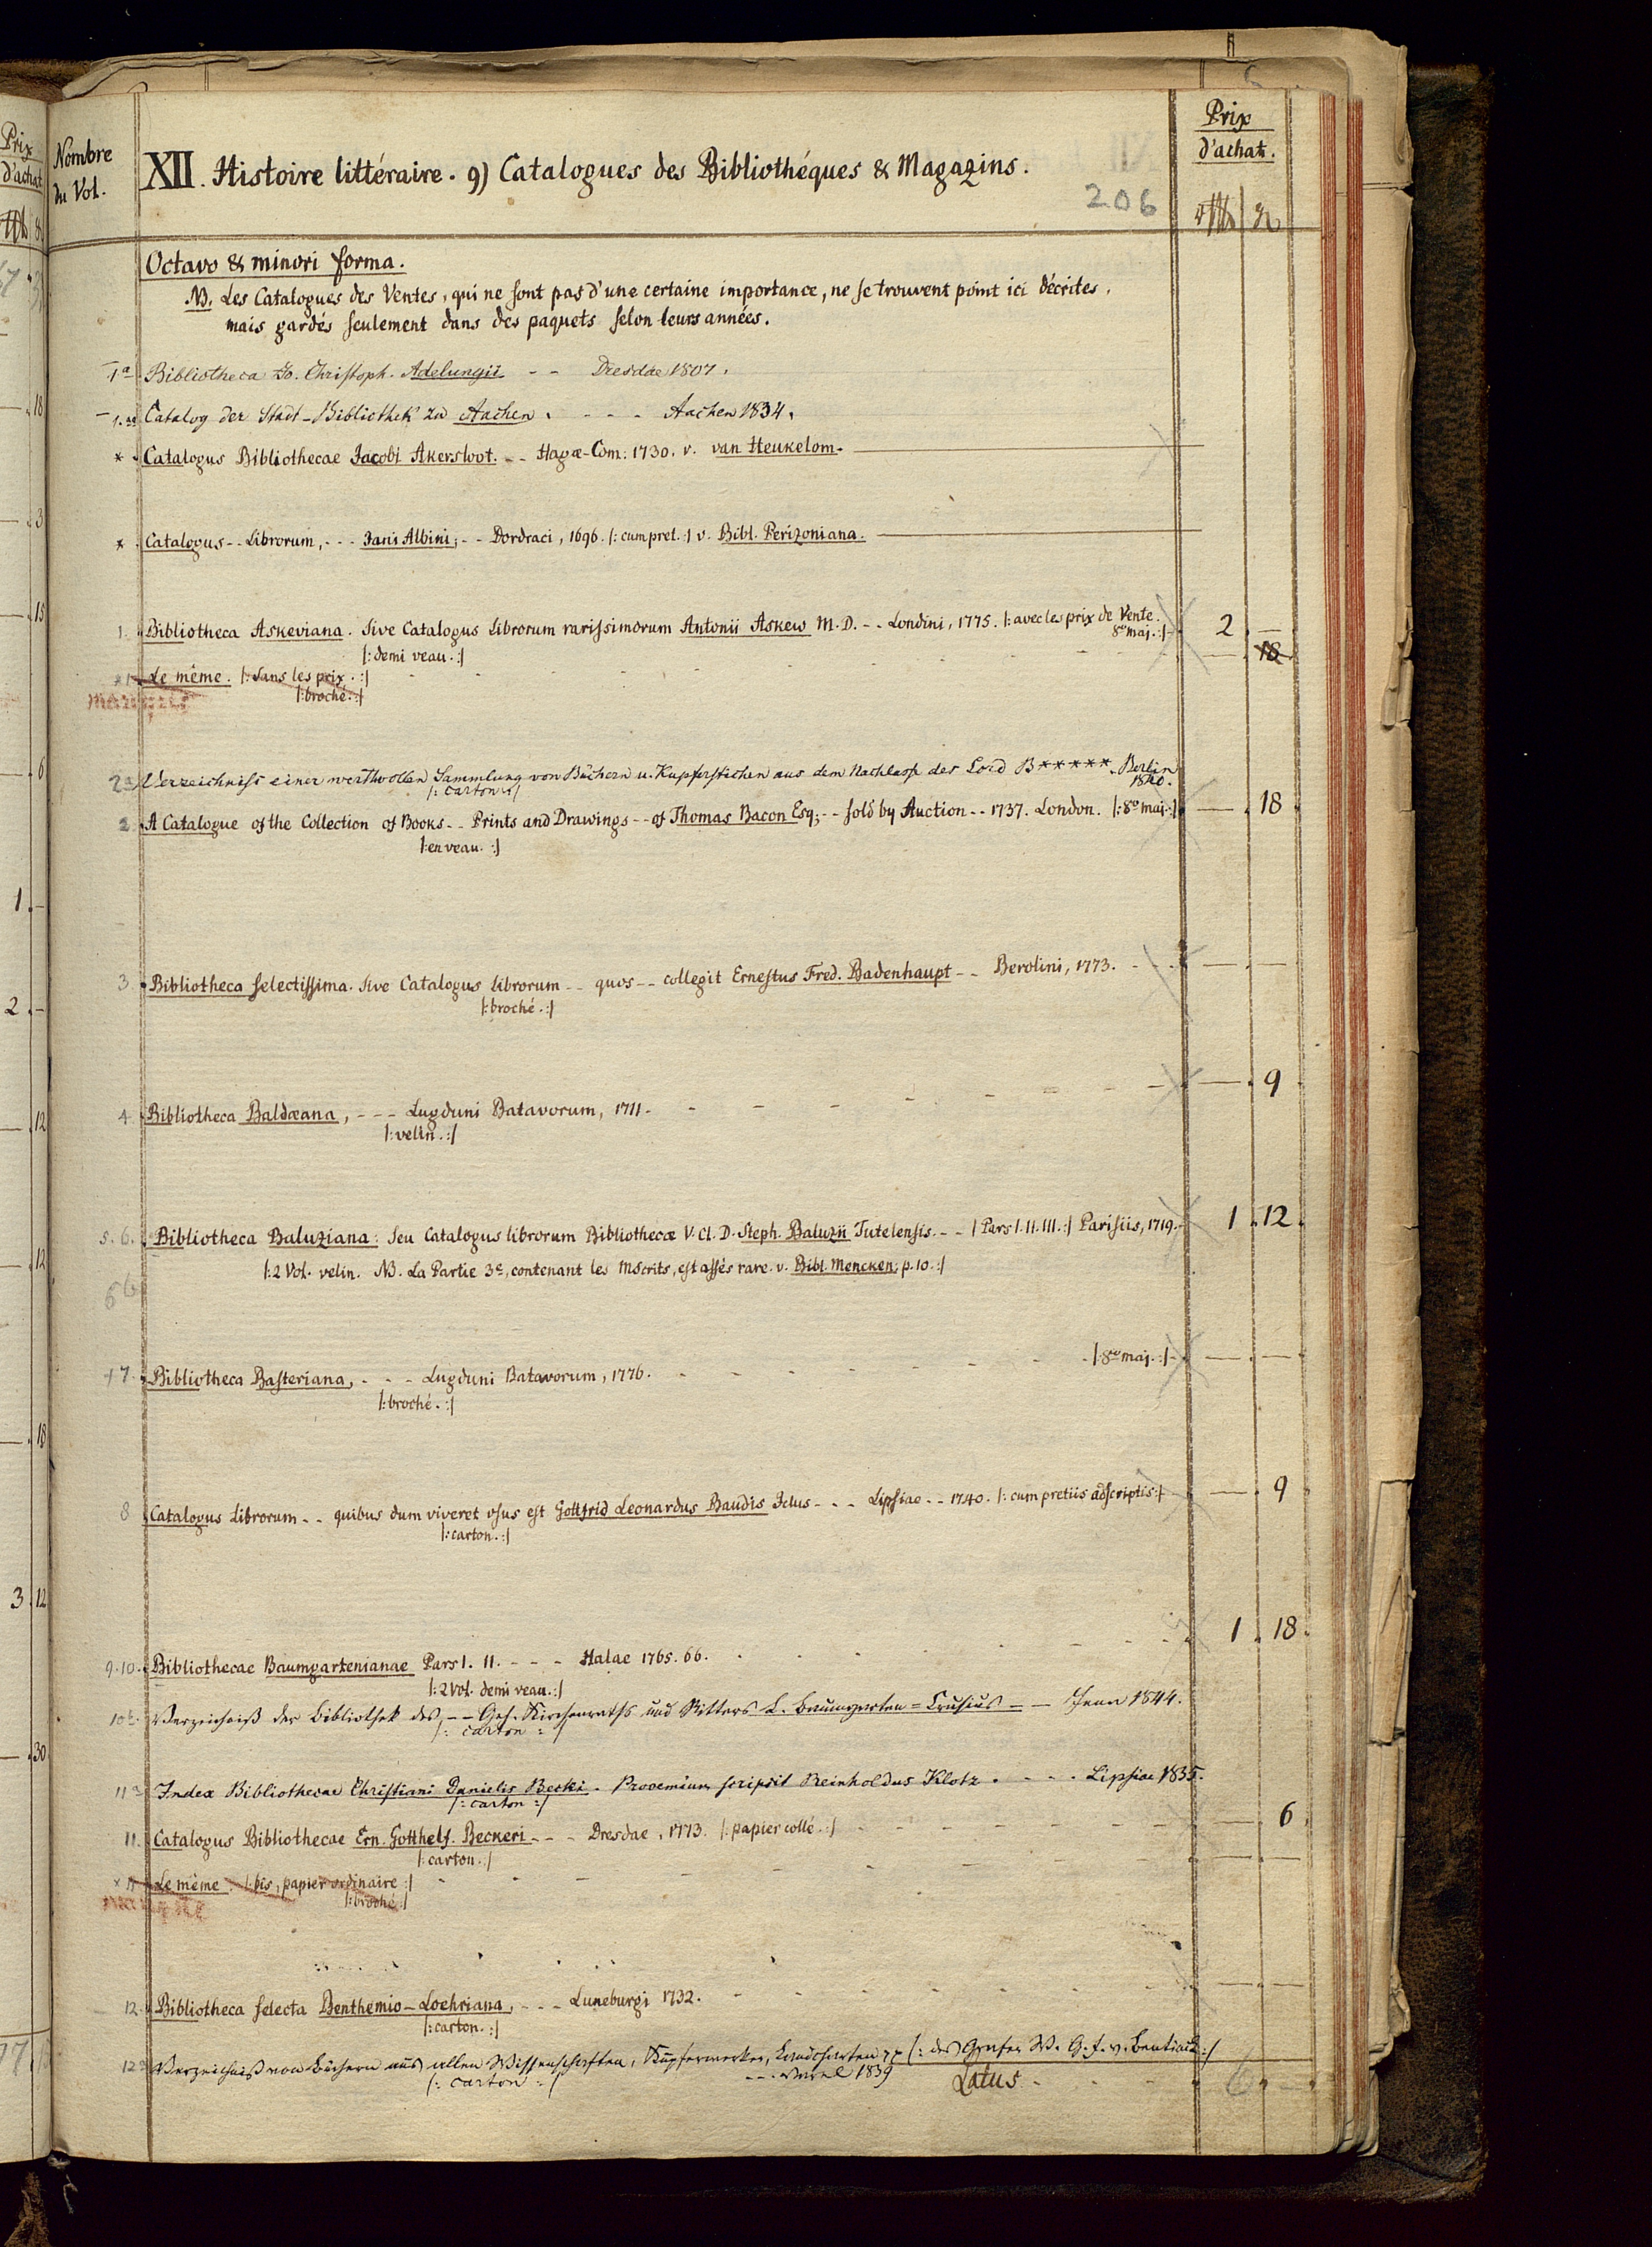 Prix
d'achat
Nombre
du Vol.
XII. Histoire littéraire. 9) Catalogues des Bibliothéques & Magazins.
206
Prix
d'achat.
Octavo & minori forma.
NB. Les Catalogues des Ventes, qui ne sont pas d'une certaine importance, ne se trouvent point ici décrites,
mais gardés seulement dans des paquets selon leurs années.
1a Bibliotheca Jo. Christoph. Adelungii - - Dresdae 1807.
1.aa Catalog der Stadt-Bibliothek zu Aachen. - - - Aachen 1834.
* Catalogus Bibliothecae Jacobi Akersloot. - - Hagæ-Com: 1730. v. van Heukelom.
* Catalogus - - Librorum, - - - Janis Albini; - - Dordraci, 1696. |: cum pret. :| v. Bibl. Perizoniana.
1. Bibliotheca Askeviana. Sive Catalogus Librorum rarissimorum Antonii Askew M.D. - - Londini, 1775. |: avec les prix de Vente. 2 —
8vo maj. :|
|: demi veau. :|
Le même. |: sans les prix. :| — 18
|: broché. :|
2a Verzeichniss einer werthvollen Sammlung von Büchern u. Kupferstichen aus dem Nachlasse des Lord B*****. Berlin
1840.
|: carton :|
2. A Catalogue of the Collection of Books - - Prints and Drawings - - of Thomas Bacon Esq; - - sold by Auction - - 1737. London. |: 8o maj. :| — 18
|: en veau. :|
3 Bibliotheca selectissima. sive Catalogus librorum - - quos - - collegit Ernestus Fred. Badenhaupt - - Berolini, 1773. — —
|: broché. :|
4 Bibliotheca Baldæana, - - - Lugduni Batavorum, 1711. — 9
|: velin. :|
5. 6. Bibliotheca Baluziana: seu Catalogus librorum Bibliothecæ V. Cl. D. Steph. Baluzii Tutelensis. - - | Pars I. II. III. :| Parisiis, 1719. 1. 12.
|: 2 Vol. velin. NB. La Partie 3e, contenant les Mscrits, est assés rare. v. Bibl. Mencken: p. 10. :|
7. Bibliotheca Basteriana, - - - Lugduni Batavorum, 1776. |: 8vo maj. :| — —
|: broché. :|
8 Catalogus Librorum - - quibus dum viveret usus est Gottfrid Leonardus Baudis Ictus - - - Lipsiae - - 1740. |: cum pretiis adscriptis :| — 9
|: carton. :|
9. 10. Bibliothecae Baumgartenianae Pars I. II. - - - Halae 1765. 66. 1. 18.
|: 2 Vol. demi veau. :|
10b. Verzeichniß der Bibliothek des - - Geh. Kirchenraths und Ritters L. Baumgarten=Crusius - - Jena 1844.
|: carton :|
11a Index Bibliothecae Christiani Danielis Beckii. Prooemium scripsit Reinholdus Klotz. - - - Lipsiae 1835.
|: carton :|
11. Catalogus Bibliothecae Ern. Gotthelf. Beckeri - - - Dresdae, 1773. |: papier collé. :| — 6
|: carton. :|
Le même. |: bis, papier ordinaire :| — —
|: broché :|
12. Bibliotheca selecta Benthemio-Loehriana, - - - Luneburgi 1732. — —
|: carton. :|
12a Verzeichniß von Büchern aus allen Wissenschaften, Kupferwerken, Landcharten |: des Grafen W. G. F. v. Bentinck :|
|: carton :| - - - Varel 1839
Latus - 6. —